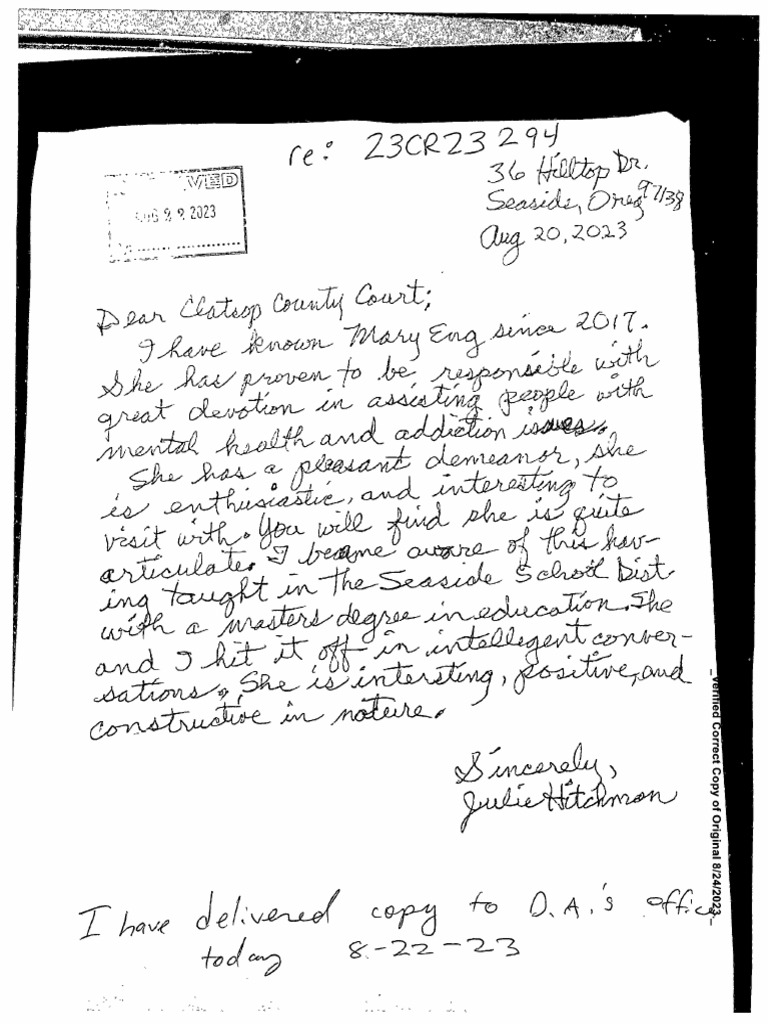 re: 23CR23294
36 Hilltop Dr.
Seaside, Oreg 97138
Aug 20, 2023
VED
AUG 22 2023
Dear Clatsop County Court;
I have known Mary Eng since 2017.
She has proven to be responsible with
great devotion in assisting people with
mental health and addiction issues.
She has a pleasant demeanor, she
is enthusiastic, and interesting to
visit with. You will find she is quite
articulate. I became aware of this hav-
ing taught in the Seaside School Dist
with a masters degree in education. She
and I hit it off in intellegent conver-
sations. She is intersting, positive, and
constructive in nature.
Sincerely,
Julie Hitchman
I have delivered copy to D.A.'s office
today 8-22-23
_Verified Correct Copy of Original 8/24/2023_